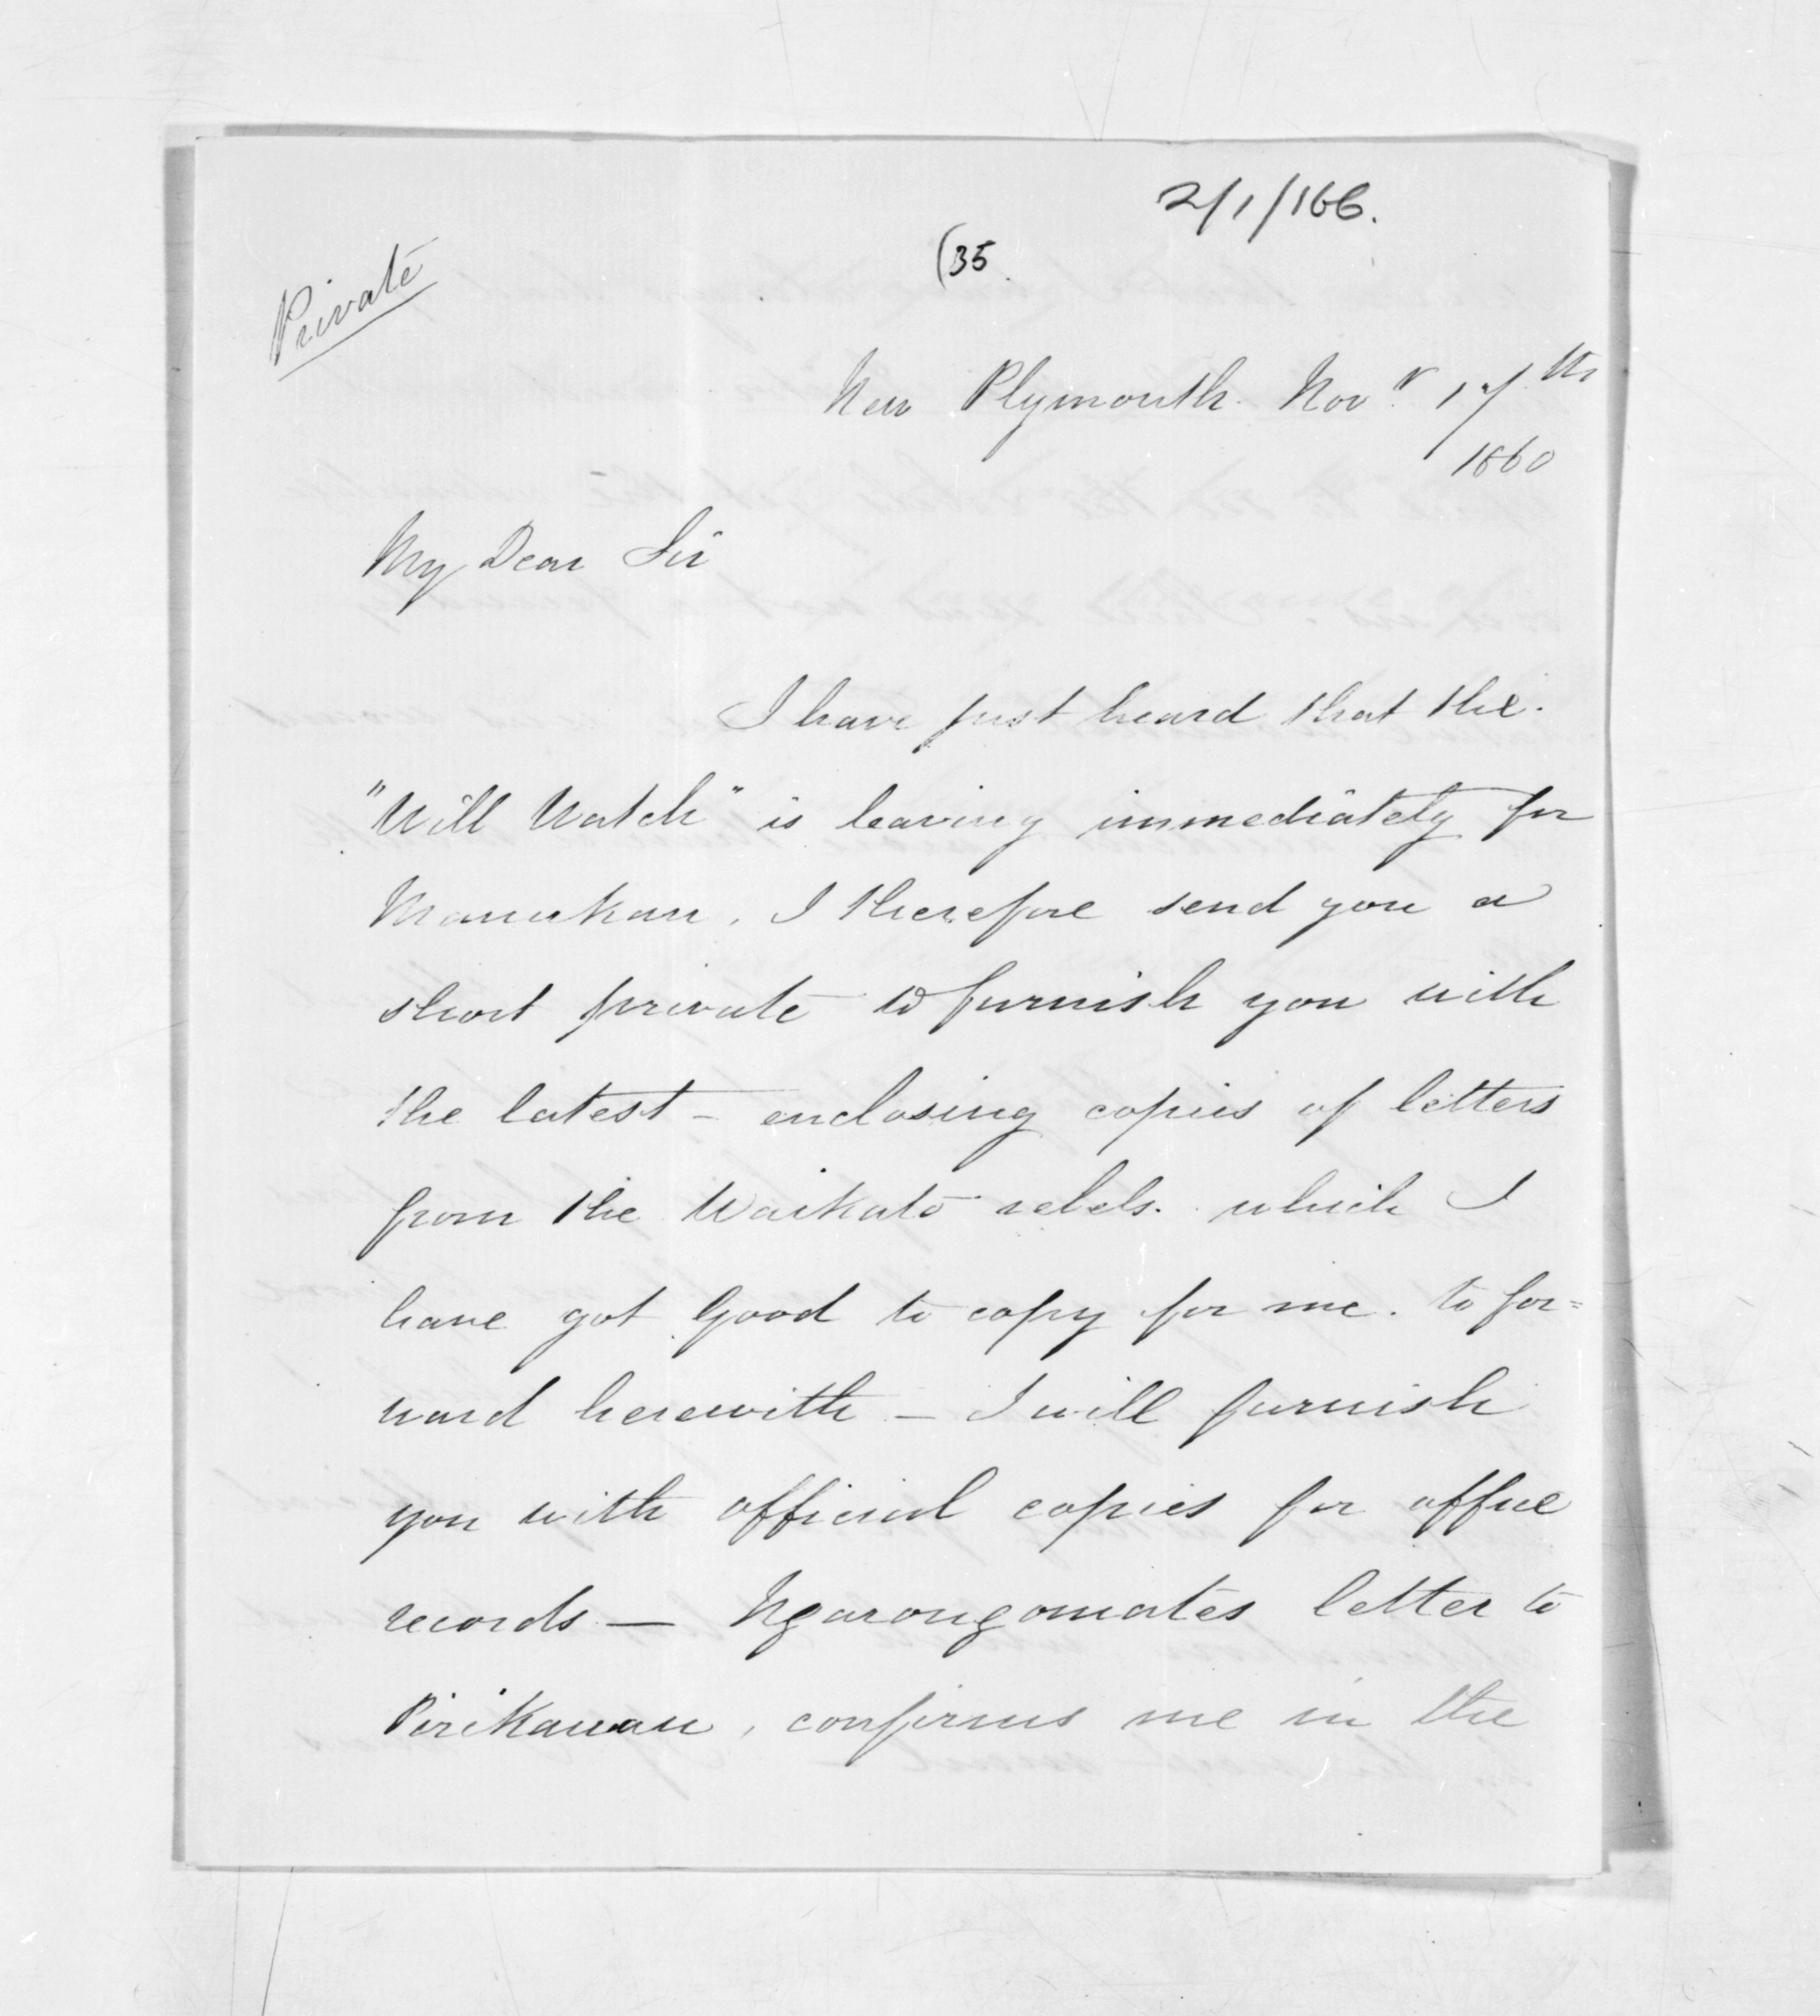 2/1/166.
(35.
Private
New Plymouth. Novr. 17th
1860
My Dear Sir
I have just heard that the
"Will Watch" is leaving immediately for
Manukau, I therefore send you a
short private to furnish you with
the latest - enclosing copies of letters
from the Waikato rebels. which I
have got Good to copy for me. to for=
ward herewith - I will furnish
you with official copies for office
records — Ngarongomates letter to
Pirikawau, confirms me in the